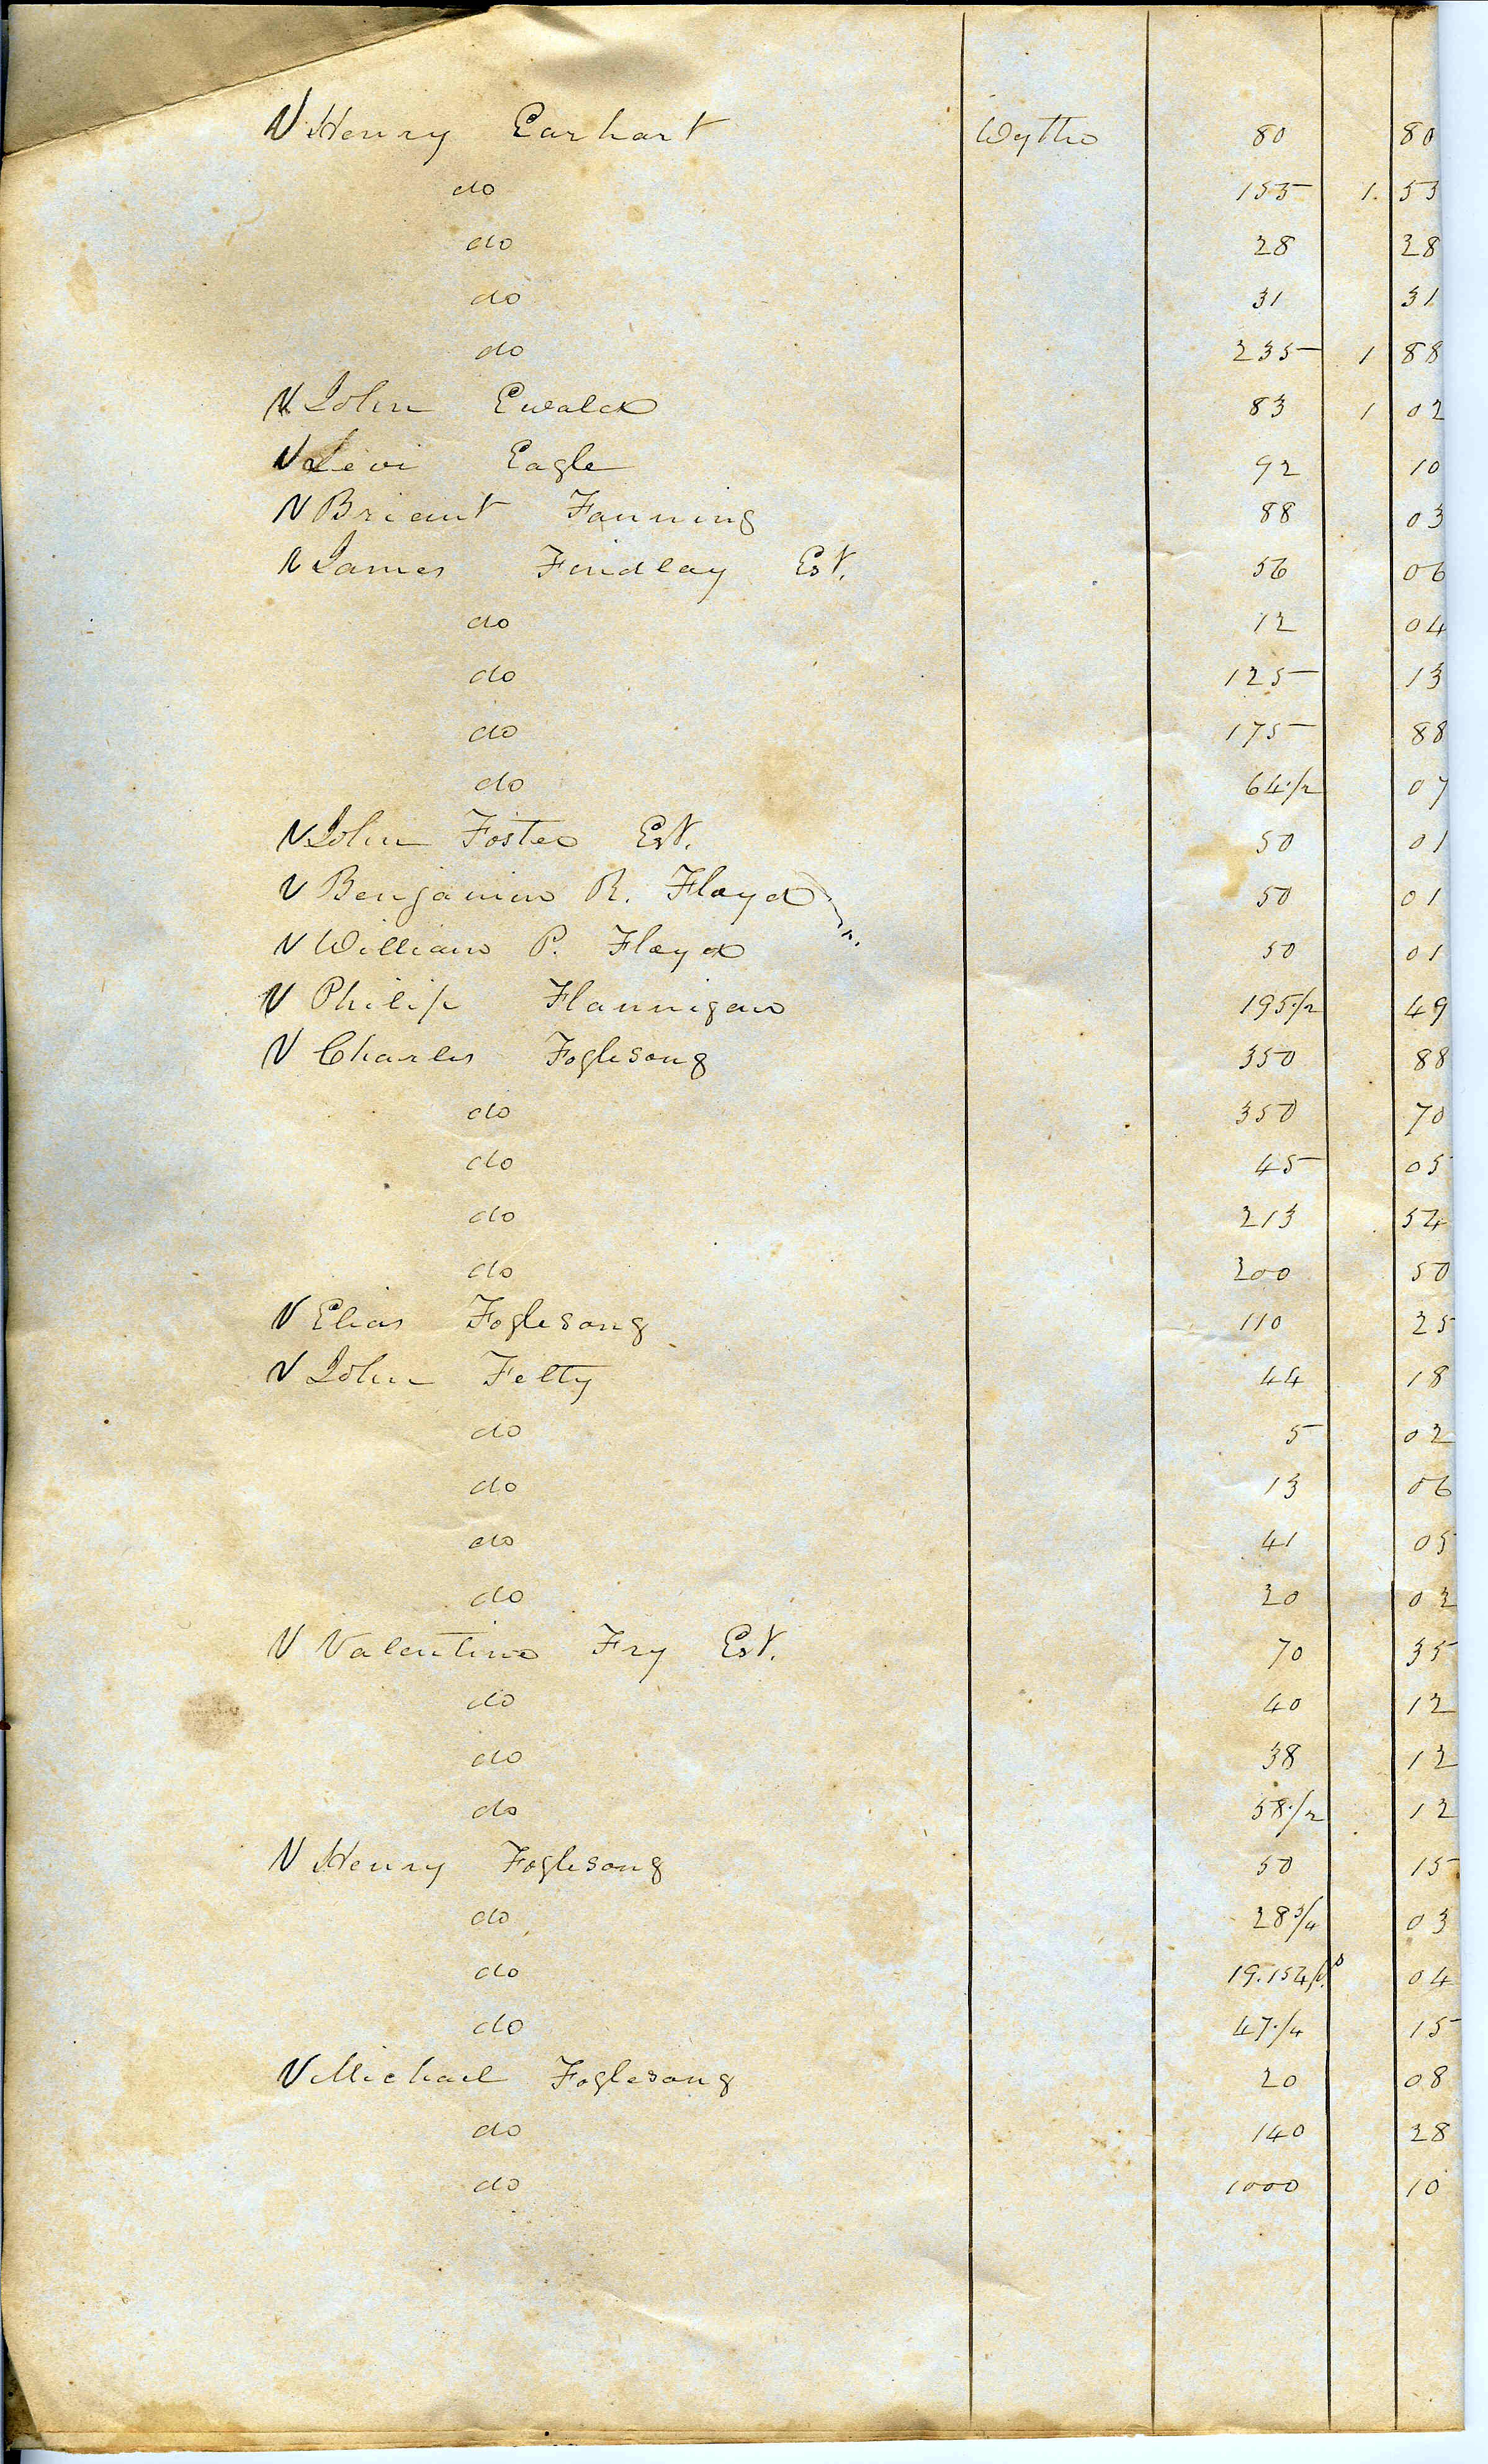 √ Henry Earhart Wythe 80 80
do 155 1. 53
do 28 28
do 31 31
do 235 1 88
√ John Ewald 83 1 02
√ Levi Eagle 92 10
√ Briant Fanning 88 03
√ James Findlay Est. 56 06
do 12 04
do 125 13
do 175 88
do 64 1/2 07
√ John Foster Est. 50 01
√ Benjamin R. Floyd 50 01
√ William P. Floyd 50 01
√ Philip Flannigan 195 1/2 49
√ Charles Foglesong 350 88
do 350 70
do 45 05
do 213 54
do 200 50
√ Elias Foglesong 110 25
√ John Felty 44 18
do 5 02
do 13 06
do 41 05
do 20 02
√ Valentine Fry Est. 70 35
do 40 12
do 38 12
do 58 1/2 12
√ Henry Foglesong 50 15
do 28 3/4 03
do 19.154 p. 04
do 47 1/4 15
√ Michael Foglesong 20 08
do 140 28
do 1000 10